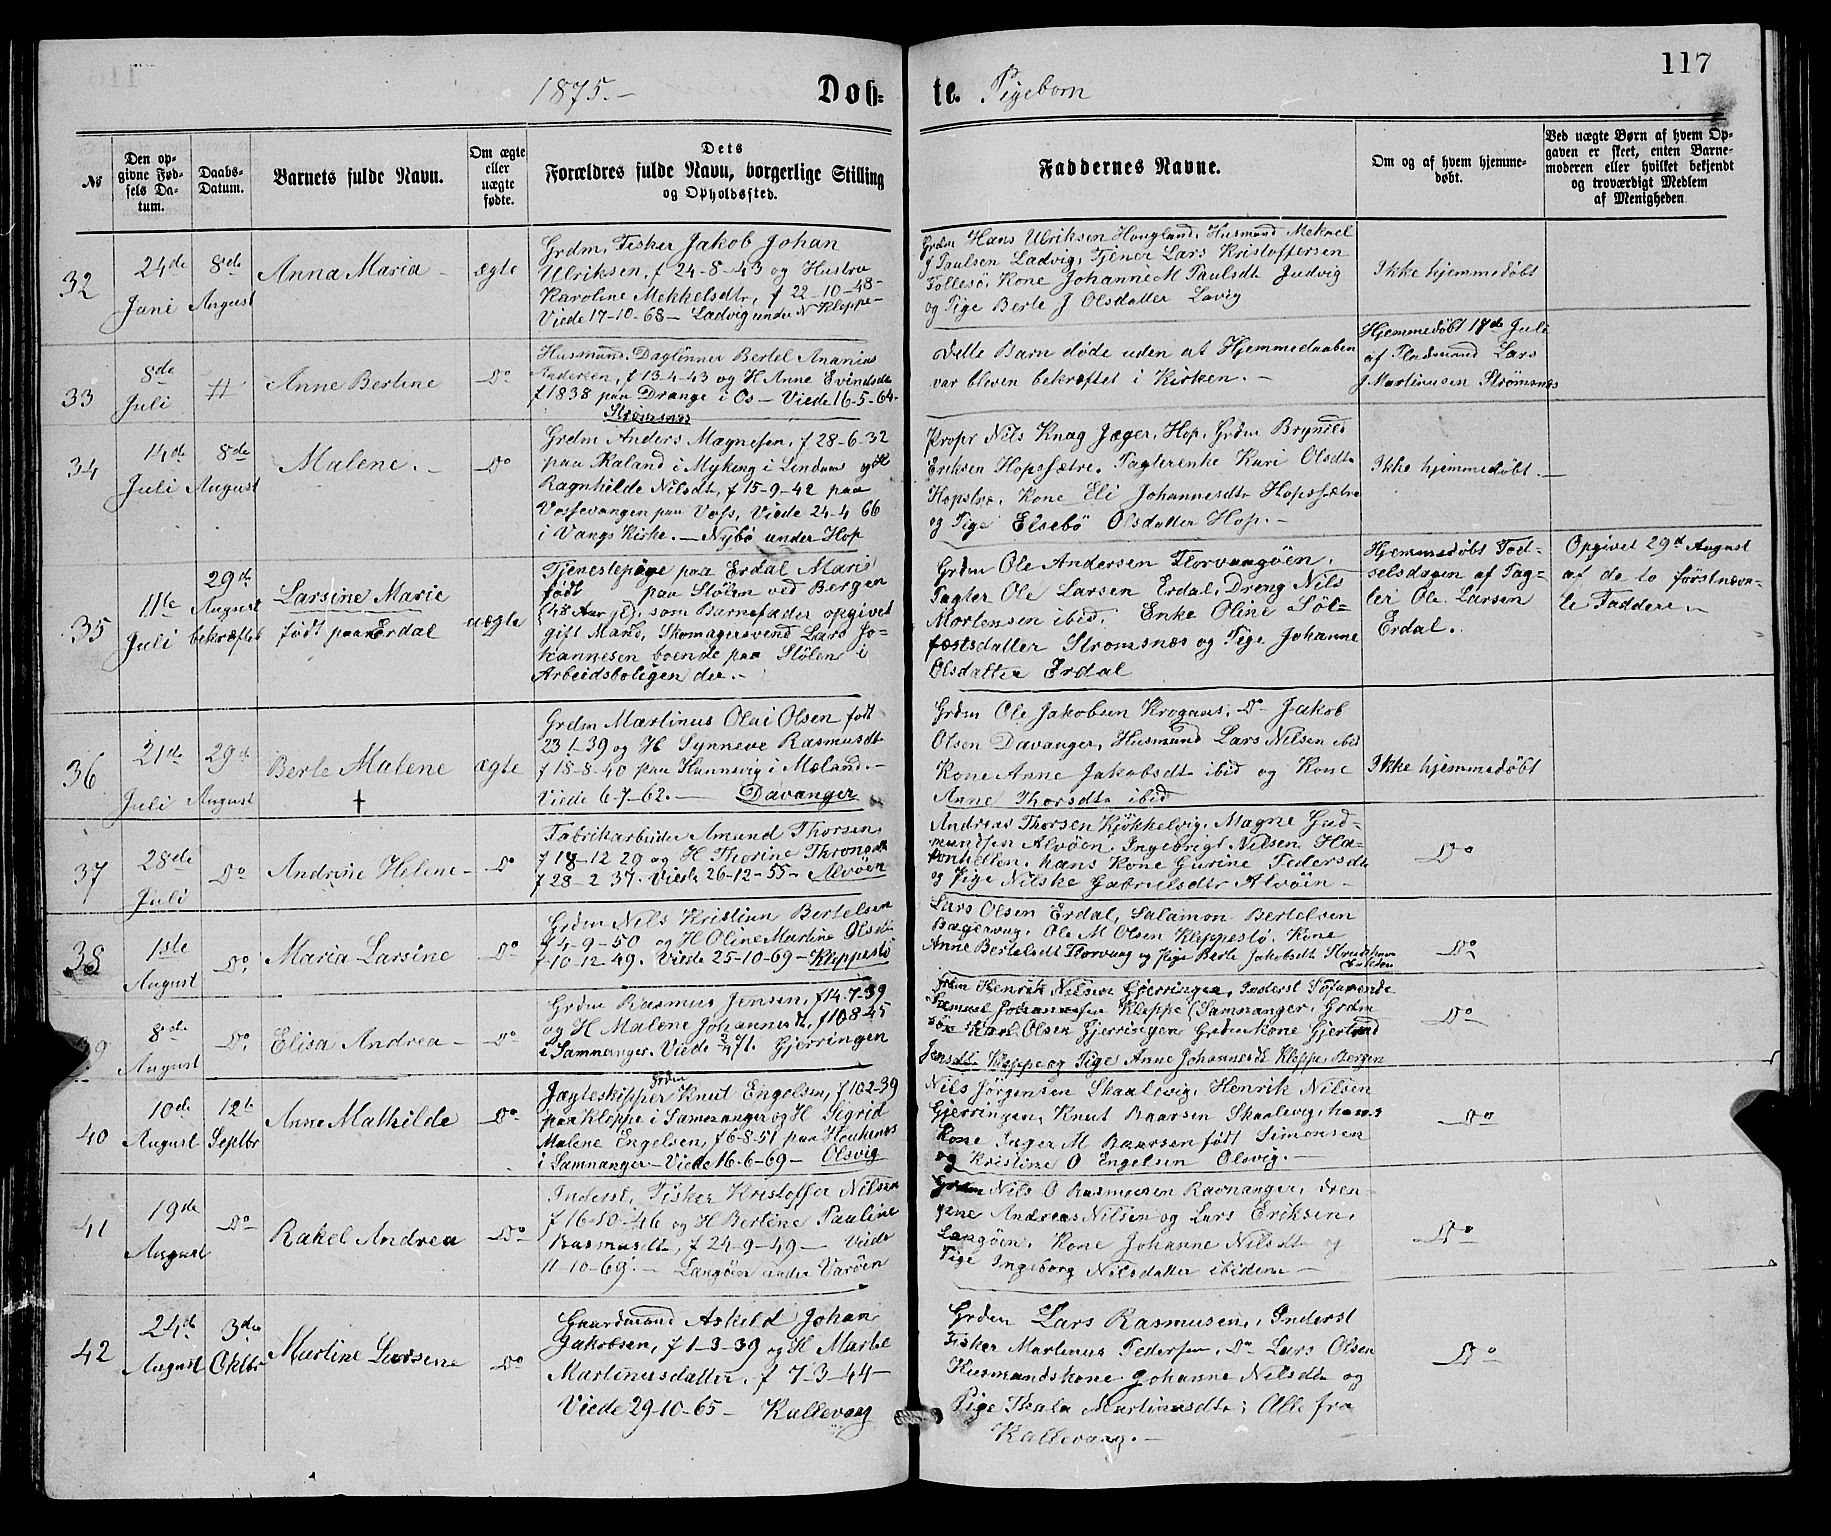 117
1875.-
Døb=
te.
Pigeborn
No
Den op-
givne Fød-
sels Da-
tum.
Daabs-
Datum.
Barnets fulde Navn.
Om ægte
eller
uægte
fødte.
Dets
Forældres fulde Navn, borgerlige Stilling
og Opholdssted.
Faddernes Navne.
Om og af hvem hjemme-
døbt.
Ved uægte Børn af hvem Op-
gaven er skeet, enten Barne-
moderen eller hvilket bekjendt
og troværdigt Medlem
af Menigheden
32
24de
Juni
8de
August
Anna Maria -
ægte
Grdm, Fisker Jakob Johan
Ulriksen, f 24-8-43 og Hustru
Karoline Mekkelsdtr, f 22-10-48-
Viede 17-10-68- Ladvig under N Kleppe-
Grdm Hans Ulriksen Hougland, Husmand Mekael
J Paulsen Ladvig, Tjener Lars Kristoffersen
Follesö, Kone Johanne M Paulsdt Ladvig
og Pige Berte J Olsdatter Lavig
Ikke hjemmedøbt
33
8de
Juli
Anne Bertine
Do
Husmand, Daglönner Bertel Ananias
Andersen, f 13-4-43 og H Anne Evindsdt
f 1838 paa Drange i Os - Viede 16-5-64-
Strømsnæs
Dette Barn døde uden at Hjemmedaaben
var bleven bekræftet i Kirken. -
Hjemmedøbt 17de Juli
af Pladsmand Lars
J Martinusen Strømsnæs
34
14de
Juli
8de
August
Malene. -
Do
Grdm Anders Magnesen, f 28-6-32
paa Kaland i Myking i Lindaas og H
Ragnhilde Nilsdt, f 15-9-42 paa
Vossevangen paa Voss, Viede 24-4 66
i Vangs Kirke. - Nybö under Hop
Propr Nils Knag Jæger, Hop, Grdm Brynild
Eriksen Hopssætre, Pagterenke Kari Olsdt
Hopstræ, Kone Eli Johannesdt Hopssætre
og Pige Elsebö Olsdatter Hop. -
Ikke hjemmedøbt. -
35
11te
Juli
29de
August
bekræftet
Larsine Marie
født paa Erdal
uægte
Tjenestepige paa Erdal Marie
født paa Stölen ved Bergen
(48 Aar gl), som Barnefader opgivet
gift Mand, Skomagersvend Lars Jo-
hannesen boende paa Stölen i
Arbeidsboligen der. -
Grdm Ole Andersen Florvaagöen,
Pagter Ole Larsen Erdal, Dreng Nils
Mortensen ibid. Enke Oline Söl-
fæstsdatter Stromsnæs og Pige Johanne
Olsdatter Erdal
Hjemmedøbt Fød-
selsdagen af Pag-
ter Ole Larsen
Erdal.
Opgivet 29d August
af de to förstnævn-
te Faddere. -
36
21de
Juli
29de
August
Berte Malene
ægte
Grdm Martinus Olai Olsen født
23-1-39 og H Synneve Rasmusdt
f 18-8-40 paa Hannevig i Mæland. -
Viede 6-7-62. - Davanger
Grdm Ole Jakobsen Krogaas, Do Jakob
Olsen Davanger, Husmand Lars Nilsen ibid
Kone Anne Jakobsdt ibid og Kone
Anne Thorsdt ibid
Ikke hjemmedøbt
37
28de
Juli
Do
Andrine Helene -
Do
Fabrikarbeider Amund Thorsen
f 18-12 29 og H Thorine Throngsdt
f 28-2 37. Viede 26-12-55- Alvöen
Andreas Thorsen Kjökkelvig, Magne Gud-
mundsen Alvöen, Ingebrigt Nilsen Ha-
konhellen, hans Kone Gurine Pedersdt
og Pige Nilske Gabrielsdtr Alvöen -
Do
38
1ste
August
Do.
Maria Larsine
Do
Grdm Nils Kristian Bertelsen
f 4-9-50 og H Oline Martine Olsdt
f 10-12 49. Viede 25-10-69- Kleppestö
Lars Olsen Erdal, Salamon Bertelsen
Bagervaag, Ole M Olsen Kleppestö, Kone
Anne Bertelsdt Florvaag og Pige Berte Jakobsdt
Do
39
8de
August
Do.
Elisa Andrea -
Do
Grdm Rasmus Jensen, f 14-7-39
og H Malene Johannesdt, f 10 8-45
i Samnanger. Viede 71. Gjerringen
Grdm Henrik Nilsen Gjerringen, Inderst Söfarende
Samuel Johannesen Kleppe (Samnanger, Grdm
Sön Karl Olsen Gjerringen Grdmkone Gjertrud
Jensdt Kleppe og Pige Anne Johannesdt Kleppe Bergen
Do
40
10de
August
12te
Septbr
Anne Mathilde
Do
Grdm
Jægteskipper Knut Engelsen, f 10 2-39
paa Kleppe i Samnanger og H Sigrid
Malene Engelsen, f 6-8-51 paa Houkenæs
i Samnanger - Viede 16-6-69- Olsvig
Nils Jörgensen Skaalevig, Henrik Nilsen
Gjerringen, Knut Baarsen Skaalevig, hans
Kone Inger M Baarsen født Simonsen
og Kristine O Engelsen Olsvig. -
Do
41
19de
August
Do
Rakel Andrea
Do
Inderst, Fisker Kristoffer Nilsen
f 16-10-46 og H Bertine Pauline
Rasmusdt, f 24-9-49- Viede
11-10-69. - Langöen under Varöen
Grdm Nils O Rasmussen Ravnanger, Dren-
gene Andreas Nilsen og Lars Eriksen,
Langöen, Kone Johanne Nilsdt og
Pige Ingeborg Nilsdatter ibidem -
Do
42
24de
August
3die
Oktbr
Martine Larsine
Do
Gaardmand Askild Johan
Jakobsen, f 1-3-39 og H Marte
Martinusdatter, f 7-3-44-
Viede 29-10-65- Kallevaag
Grdm Lars Rasmusen, Inderst
Fisker Martinus Pedersen, Do Lars Olsen
Husmandskone Johanne Nilsdt og
Pige Thala Martinusdt; Alle fra
Kallevaag. -
Do